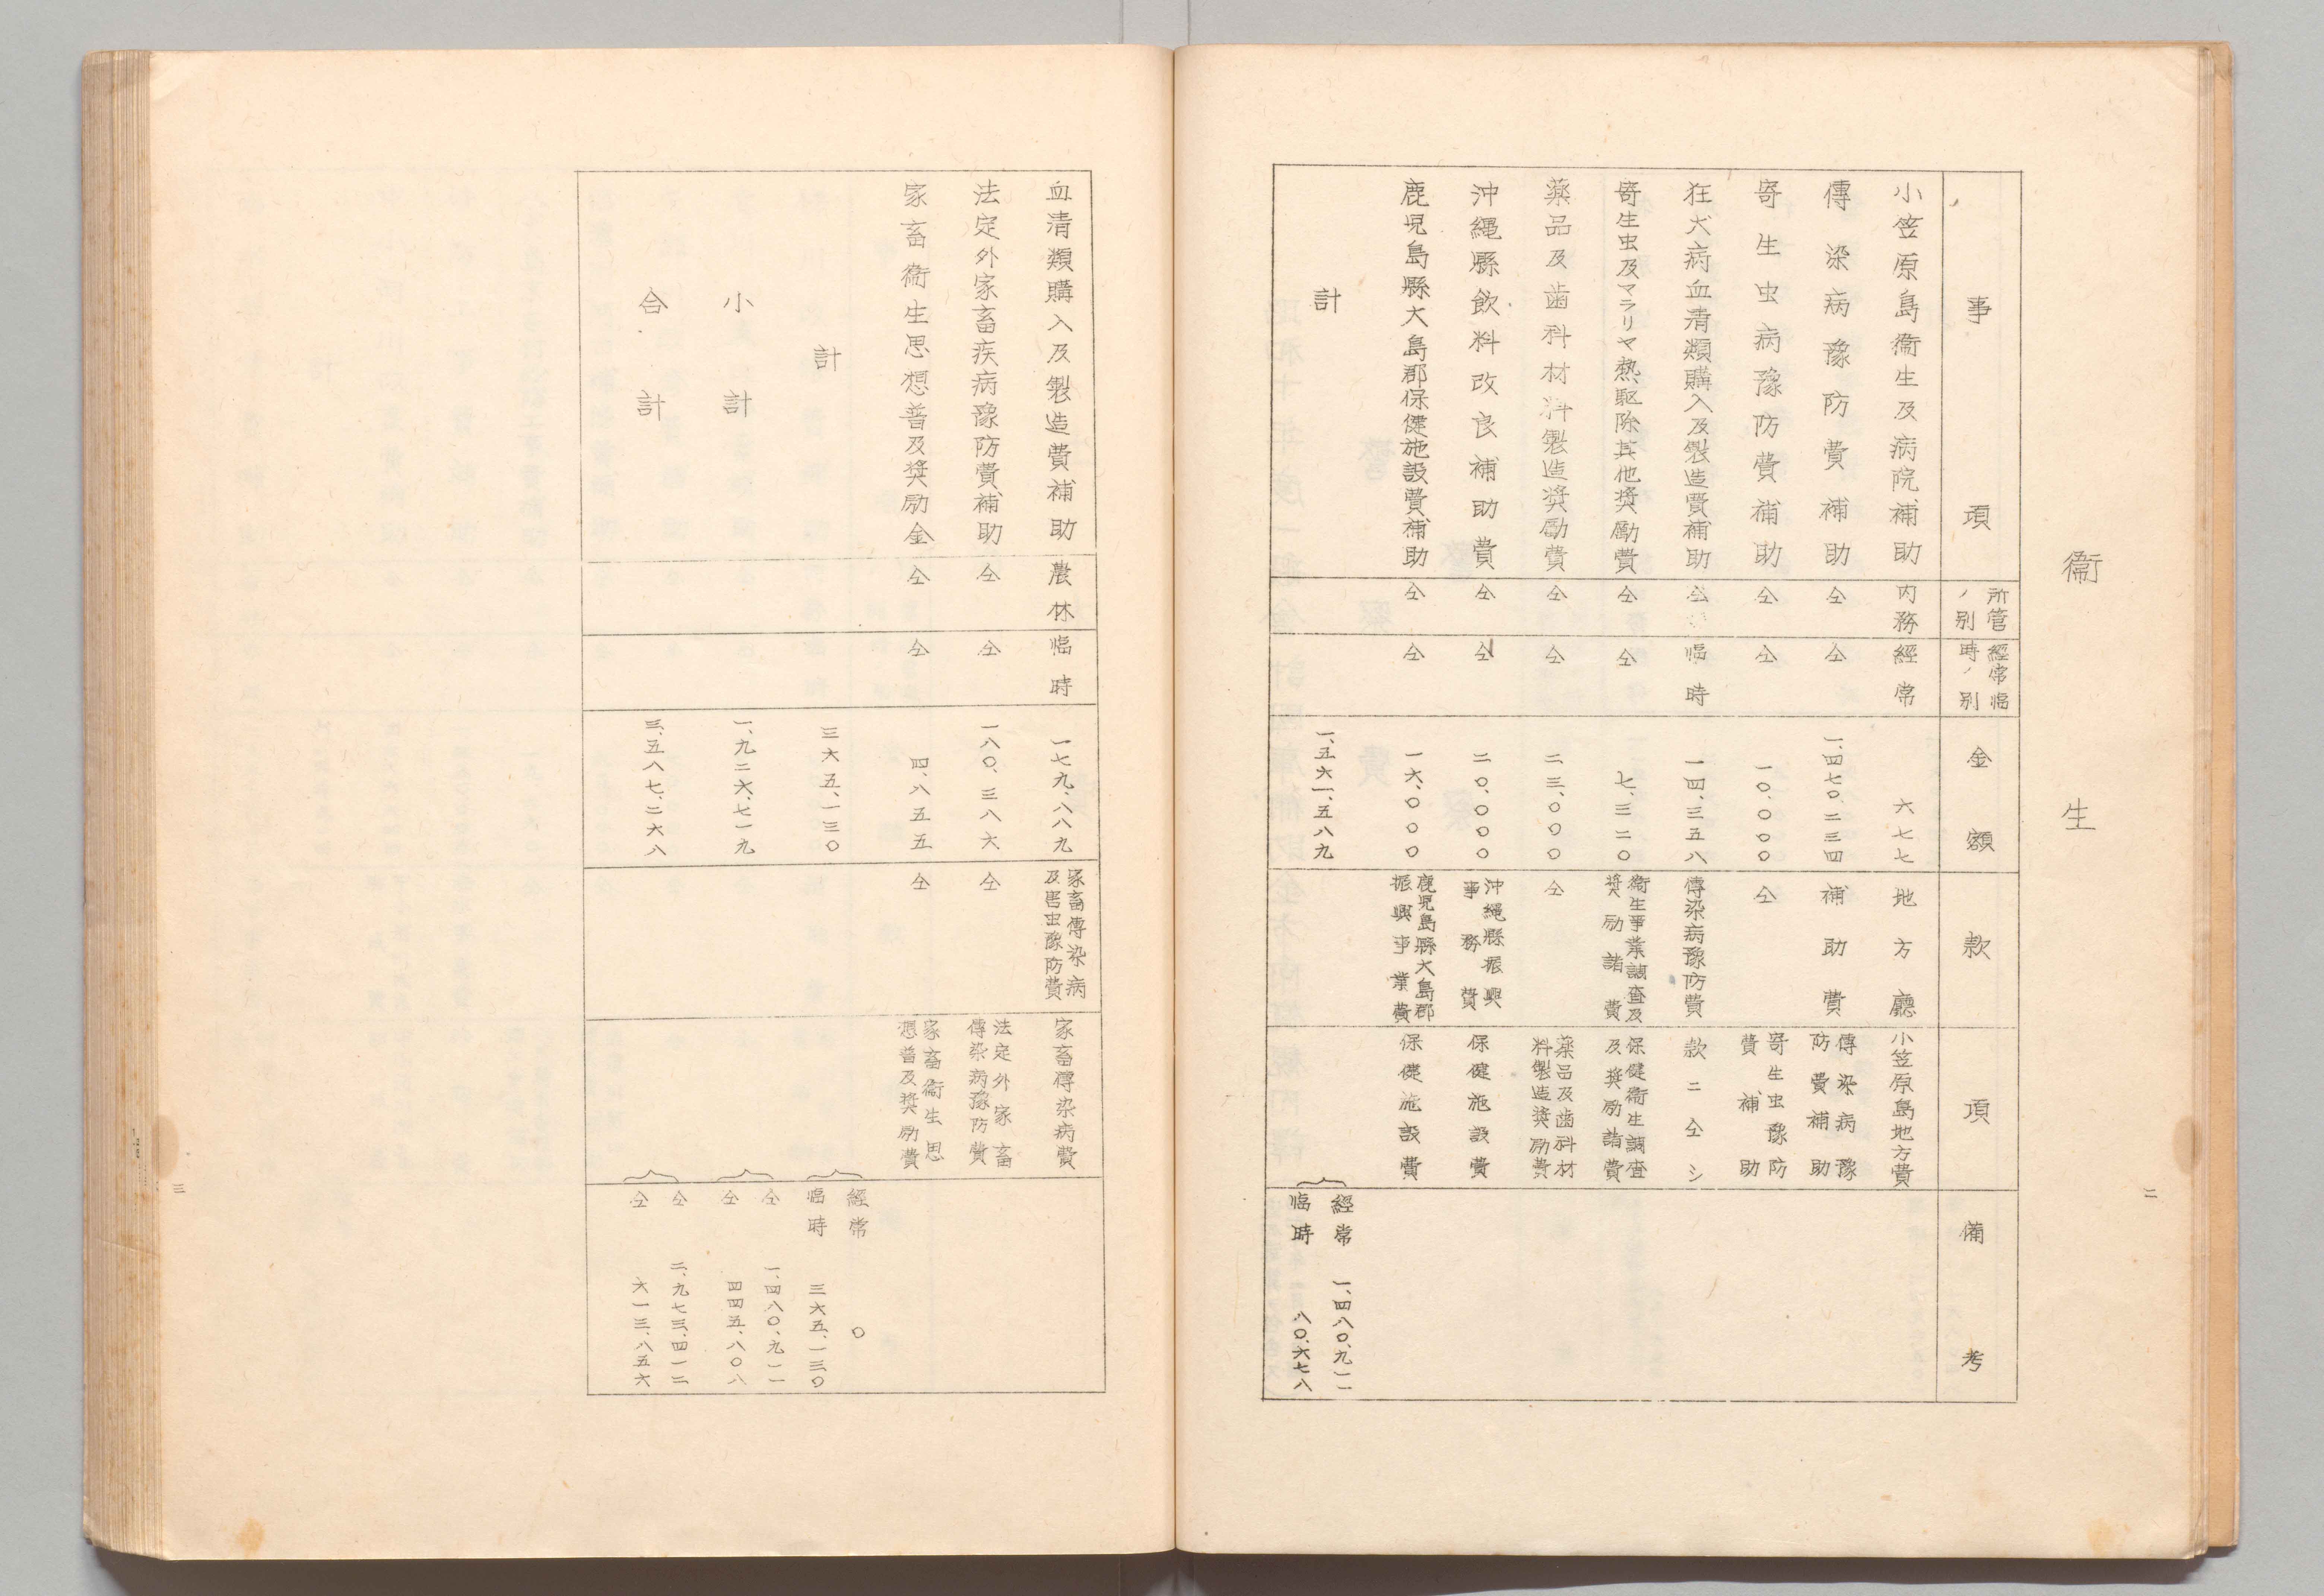 二
衞生
事項
所管ノ別
經常臨時ノ別
金額
款
項
備考
小笠原島衞生及病院補助
内務
經常
六七七
地方廳
小笠原島地方費
傳染病豫防費補助
仝
仝
一、四七〇、二三四
補助費
傳染病豫防費補助
寄生虫病豫防費補助
仝
仝
一〇、〇〇〇
仝
寄生虫豫防費補助
狂犬病血清類購入及製造費補助
仝
臨時
一四、三五八
傳染病豫防費
款ニ仝シ
寄生虫及マラリヤ熱駆除其他奨勵費
仝
仝
七、三二〇
衞生事業調査及奨励諸費
保健衞生調査及奨励諸費
薬品及歯科材料製造奨勵費
仝
仝
二三、〇〇〇
仝
薬品及歯科材料製造奨励費
沖縄縣飲料改良補助費
仝
仝
二〇、〇〇〇
沖縄縣振興事務費
保健施設費
鹿児島縣大島郡保健施設費補助
仝
仝
一六、〇〇〇
鹿児島縣大島郡振興事業費
保健施設費
計
一、五六一、五八九
經常 一、四八〇、九一一
臨時 八〇、六七八
血清類購入及製造費補助
農林
臨時
一七九、八八九
家畜傳染病及害虫豫防費
家畜傳染病費
法定外家畜疾病豫防費補助
仝
仝
一八〇、三八六
仝
法定外家畜傳染病豫防費
家畜衞生思想普及奨励金
仝
仝
四、八五五
仝
家畜衞生思想普及奨励費
計
三六五、一三〇
經常 〇
臨時 三六五、一三〇
小計
一、九二六、七一九
仝 一、四八〇、九一一
仝 四四五、八〇八
合計
三、五八七、二六八
仝 二、九七三、四一二
仝 六一三、八五六
三